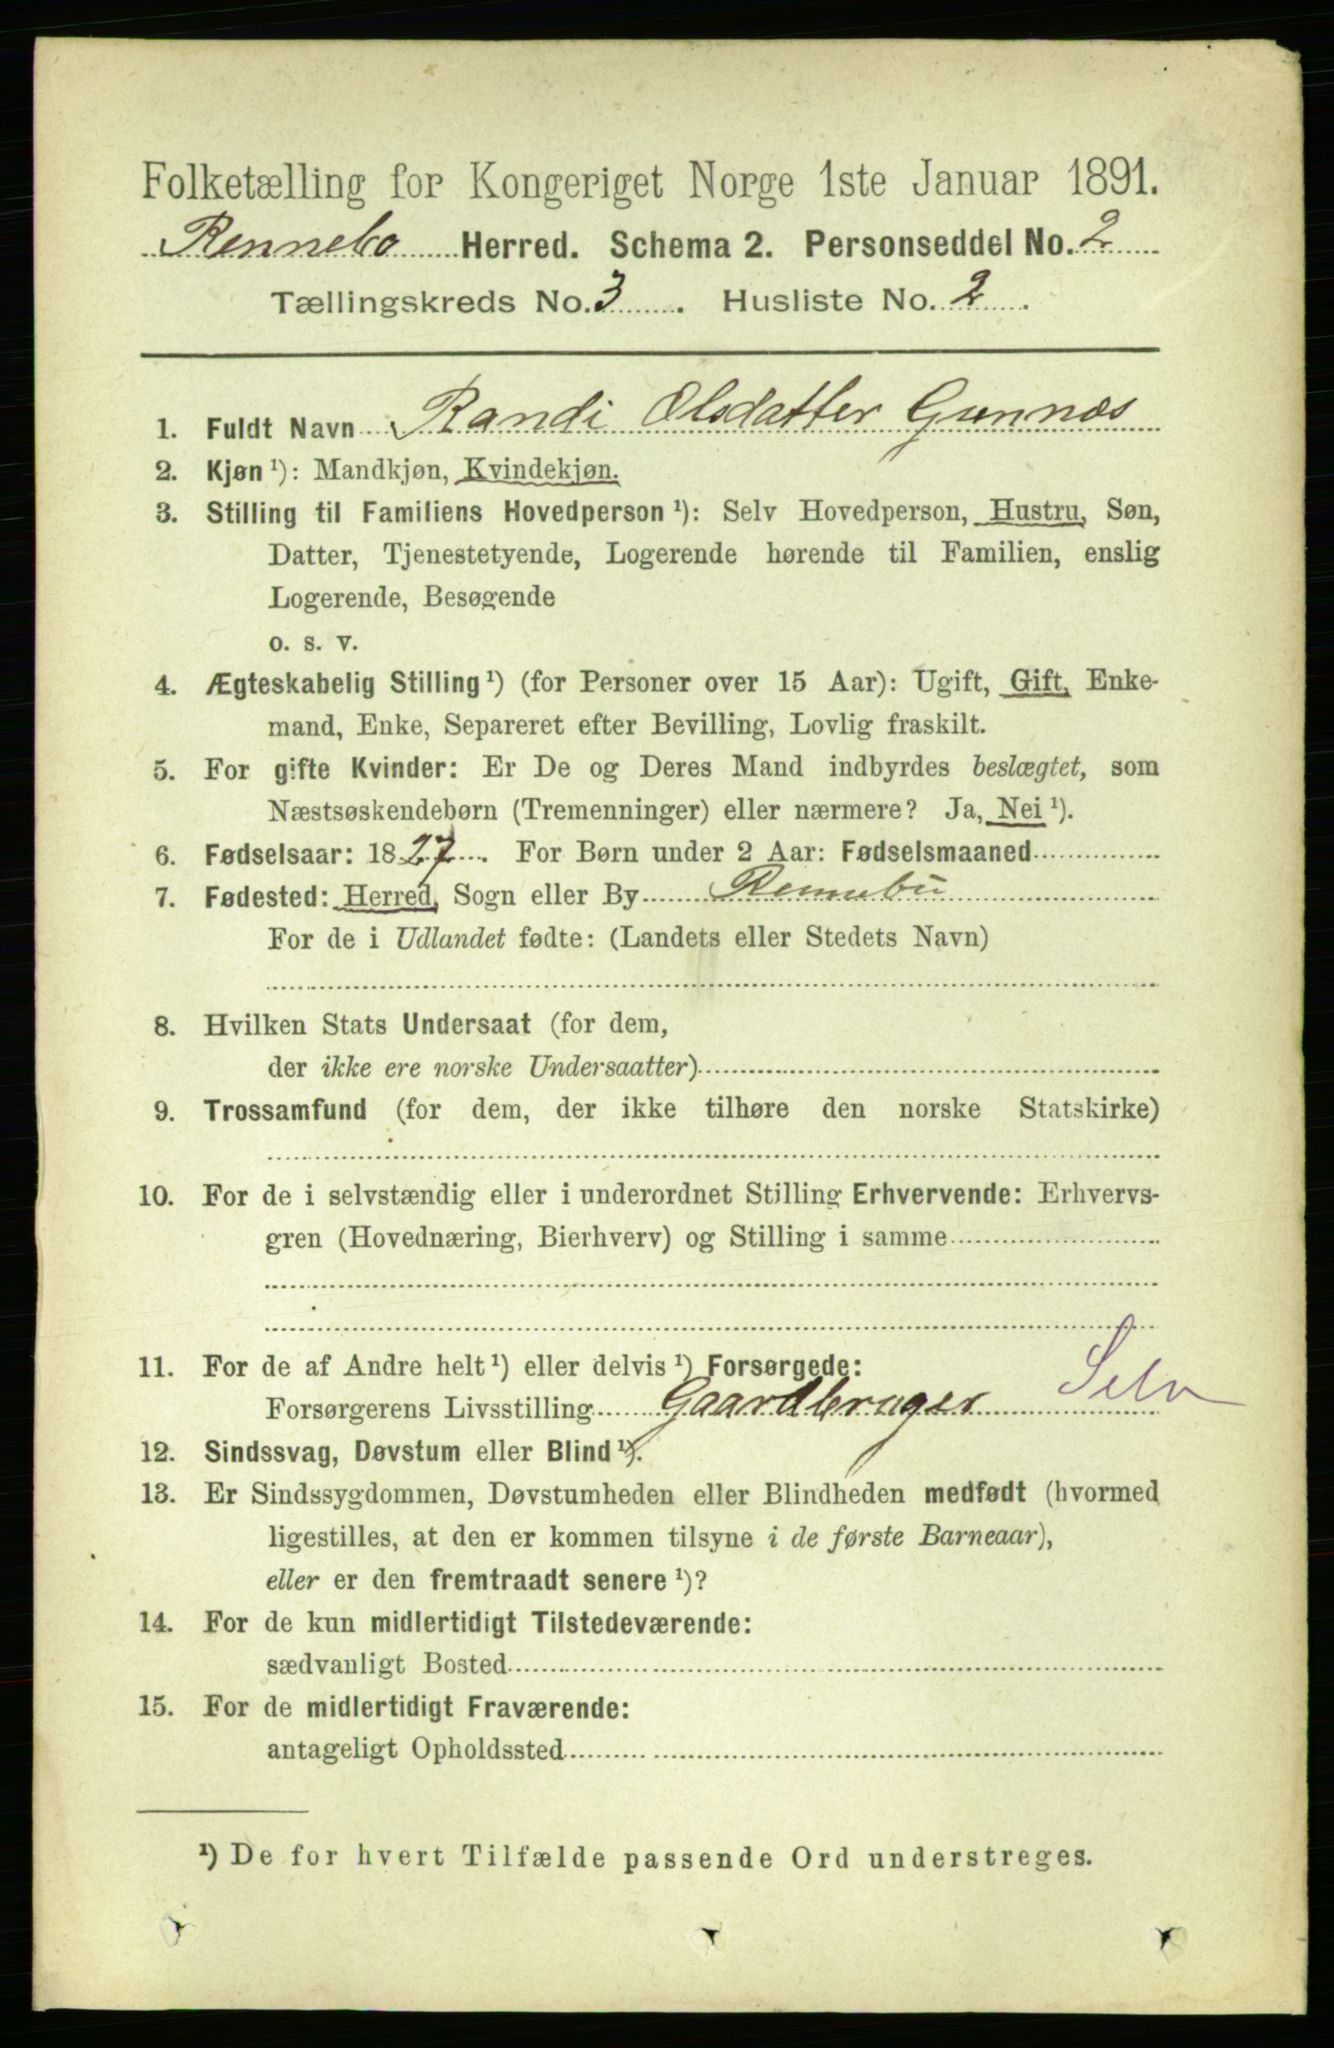 Folketælling for Kongeriget Norge 1ste Januar 1891.
Rennebo Herred. Schema 2. Personseddel No. 2
Tællingskreds No. 3. Husliste No. 2.
1. Fuldt Navn Randi Olsdatter Gunnæs
2. Kjøn ¹): Mandkjøn, Kvindekjøn.
3. Stilling til Familiens Hovedperson ¹): Selv Hovedperson, Hustru, Søn,
Datter, Tjenestetyende, Logerende hørende til Familien, enslig
Logerende, Besøgende
o. s. v.
4. Ægteskabelig Stilling ¹) (for Personer over 15 Aar): Ugift, Gift, Enke-
mand, Enke, Separeret efter Bevilling, Lovlig fraskilt.
5. For gifte Kvinder: Er De og Deres Mand indbyrdes beslægtet, som
Næstsøskendebørn (Tremenninger) eller nærmere? Ja, Nei ¹).
6. Fødselsaar: 1827. For Børn under 2 Aar: Fødselsmaaned
7. Fødested: Herred, Sogn eller By Rennebu
For de i Udlandet fødte: (Landets eller Stedets Navn)
8. Hvilken Stats Undersaat (for dem,
der ikke ere norske Undersaatter)
9. Trossamfund (for dem, der ikke tilhøre den norske Statskirke)
10. For de i selvstændig eller i underordnet Stilling Erhvervende: Erhvervs-
gren (Hovednæring, Bierhverv) og Stilling i samme
11. For de af Andre helt ¹) eller delvis ¹) Forsørgede:
Forsørgerens Livsstilling Gaardbruger Selv
12. Sindssvag, Døvstum eller Blind ¹).
13. Er Sindssygdommen, Døvstumheden eller Blindheden medfødt (hvormed
ligestilles, at den er kommen tilsyne i de første Barneaar),
eller er den fremtraadt senere ¹)?
14. For de kun midlertidigt Tilstedeværende:
sædvanligt Bosted
15. For de midlertidigt Fraværende:
antageligt Opholdssted
¹) De for hvert Tilfælde passende Ord understreges.